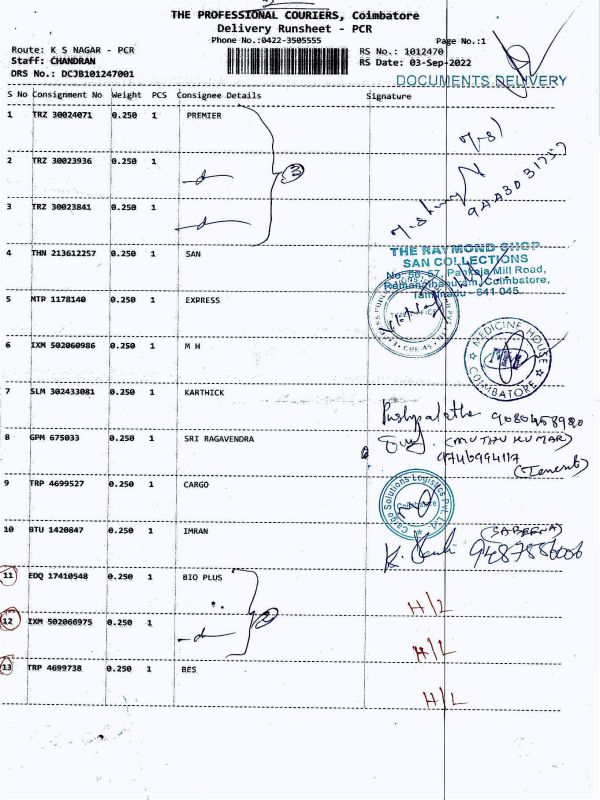 THE PROFESSIONAL COURIERS, Coimbatore
Delivery Runsheet - PCR
Phone No.:0422-3505555
Page No.:1
Route: K S NAGAR - PCR
RS No.: 1012470
Staff: CHANDRAN
RS Date: 03-Sep-2022
DRS No.: DCJB101247001
DOCUMENTS DELIVERY
S No Consignment No Weight PCS Consignee Details Signature
1 TRZ 30024071 0.250 1 PREMIER
2 TRZ 30023936 0.250 1
3 TRZ 30023841 0.250 1
3
4 THN 213612257 0.250 1 SAN
THE RAYMOND SHOP
SAN COLLECTIONS
No. 56-57, Pankaja Mill Road,
Ramanathapuram, Coimbatore,
Tamilnadu - 641 045.
5 MTP 1178140 0.250 1 EXPRESS
6 IXM 502060986 0.250 1 M H
MEDICINE HOUSE
MH
COIMBATORE
7 SLM 302433081 0.250 1 KARTHICK
Pushpalatha 9080458980
8 GPM 675033 0.250 1 SRI RAGAVENDRA
(MUTHU KUMAR)
9746994117
(Tenent)
9 TRP 4699527 0.250 1 CARGO
Cargo Solutions Logistics Pvt. Ltd.
Coimbatore
10 BTU 1420847 0.250 1 IMRAN
(SABEENA)
11 EDQ 17410548 0.250 1 BIO PLUS
H/L
12 IXM 502066975 0.250 1
2
H/L
13 TRP 4699738 0.250 1 BES
H/L